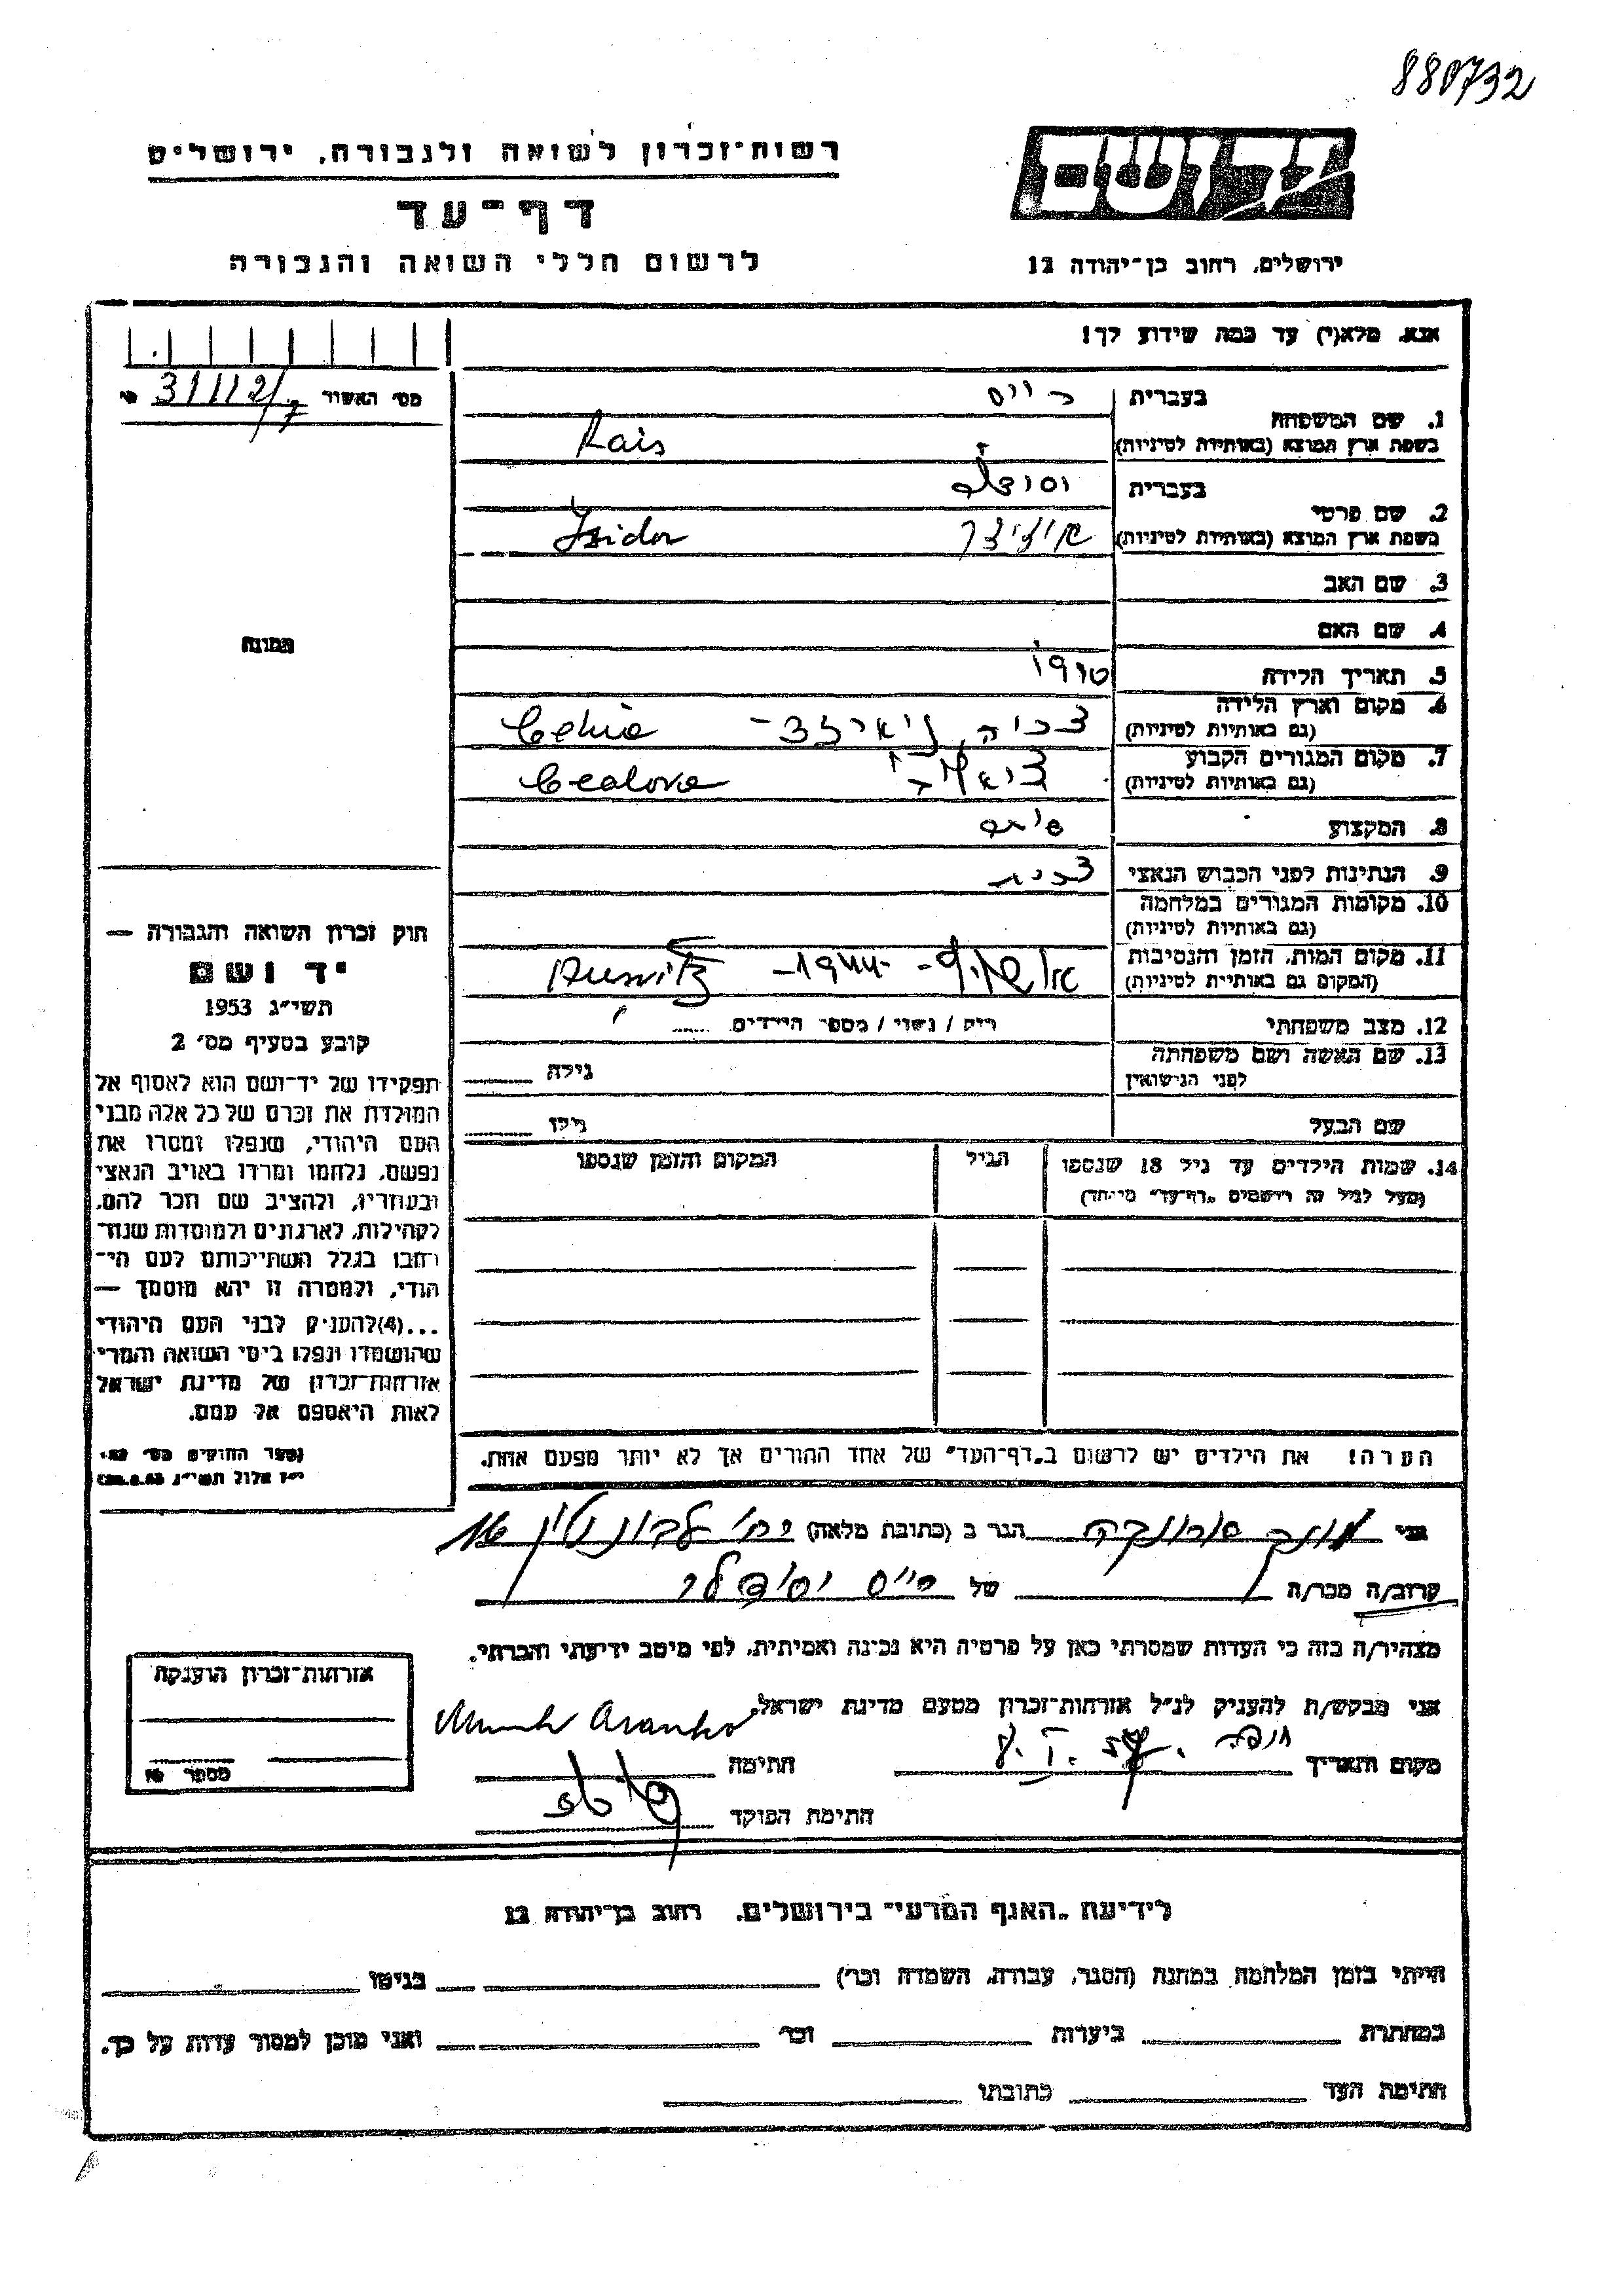 880732
יד ושם
רשות-זכרון לשואה ולגבורה, ירושלים
דף-עד
לרשום חללי השואה והגבורה
ירושלים, רחוב בן-יהודה 12
אנא, מלא(י) עד כמה שידוע לך!
מס' האשור
31112/7
1. שם המשפחה
בעברית
רייס
בשפת ארץ המוצא (באותיות לטיניות)
Rais
2. שם פרטי
בעברית
בשפת ארץ המוצא (באותיות לטיניות)
Izidor
3. שם האב
4. שם האם
5. תאריך הלידה
1910
6. מקום וארץ הלידה
(גם באותיות לטיניות)
צכיה
Cehia
7. מקום המגורים הקבוע
(גם באותיות לטיניות)
Cealova
8. המקצוע
9. הנתינות לפני הכבוש הנאצי
צכית
10. מקומות המגורים במלחמה
(גם באותיות לטיניות)
11. מקום המות, הזמן והנסיבות
(המקום גם באותיות לטיניות)
- 1944 -
12. מצב משפחתי
ריק / נשוי / מספר הילדים
13. שם האשה ושם משפחתה
לפני הנישואין
גילה
שם הבעל
גילו
14. שמות הילדים עד גיל 18 שנספו
(מעל לגיל זה רושמים „דף-עד" מיוחד)
הגיל
המקום והזמן שנספו
הערה! את הילדים יש לרשום ב„דף-העד" של אחד ההורים אך לא יותר מפעם אחת.
תמונה
חוק זכרון השואה והגבורה —
יד ושם
תשי"ג 1953
קובע בסעיף מס' 2
תפקידו של יד-ושם הוא לאסוף אל
המולדת את זכרם של כל אלה מבני
העם היהודי, שנפלו ומסרו את
נפשם, נלחמו ומרדו באויב הנאצי
ובעוזריו, ולהציב שם וזכר להם,
לקהילות, לארגונים ולמוסדות שנח-
רבו בגלל השתייכותם לעם הי-
הודי, ולמטרה זו יהא מוסמך —
...(4)להעניק לבני העם היהודי
שהושמדו ונפלו בימי השואה והמרי
אזרחות-זכרון של מדינת ישראל
לאות היאספם אל עמם.
ספר החוקים מס' 132
י"ז אלול תשי"ג 28.8.53
אני
הגר ב (כתובת מלאה)
16
קרוב/ה מכר/ה
של
רייס
מצהיר/ה בזה כי העדות שמסרתי כאן על פרטיה היא נכונה ואמיתית, לפי מיטב ידיעתי והכרתי.
אני מבקש/ת להעניק לנ"ל אזרחות-זכרון מטעם מדינת ישראל.
מקום ותאריך
חיפה
8. I. 57
חתימה
חתימת הפוקד
אזרחות-זכרון הוענקה
מספר
לידיעת „האגף המדעי" בירושלים, רחוב בן-יהודה 12
הייתי בזמן המלחמה במחנה (הסגר, עבודה, השמדה וכו') בגיטו
במחתרת ביערות וכו' ואני מוכן למסור עדות על כך.
חתימת העד כתובתו